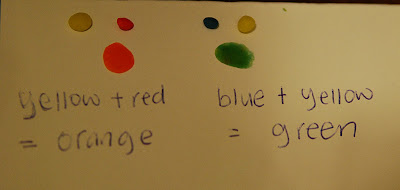 yellow + red
= orange
blue + yellow
= green